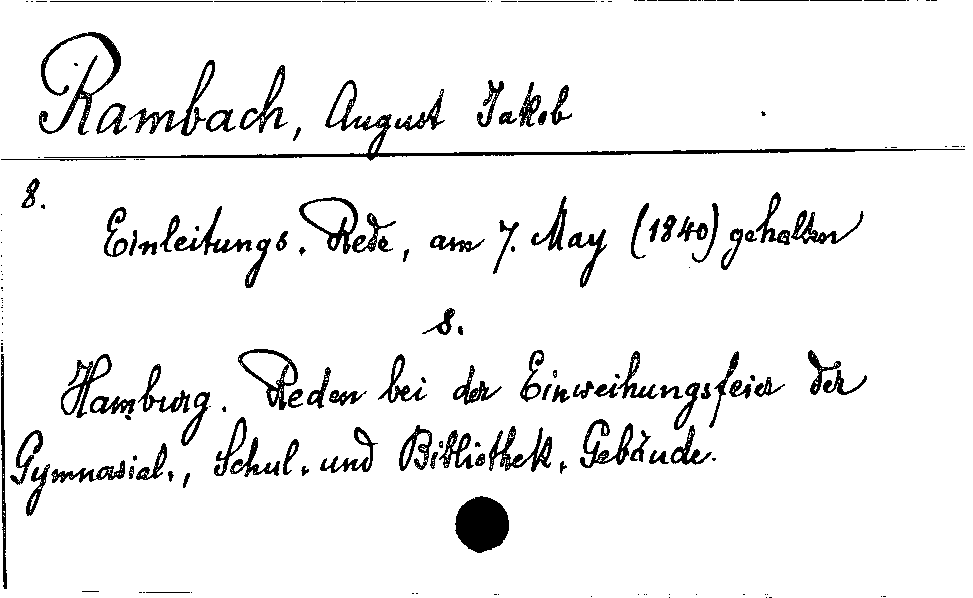 Rambach, August Jakob
8.
Einleitungs-Rede, am 7. May (1840) gehalten
s.
Hamburg. Reden bei der Einweihungsfeier der
Gymnasial-, Schul- und Bibliothek-Gebäude.